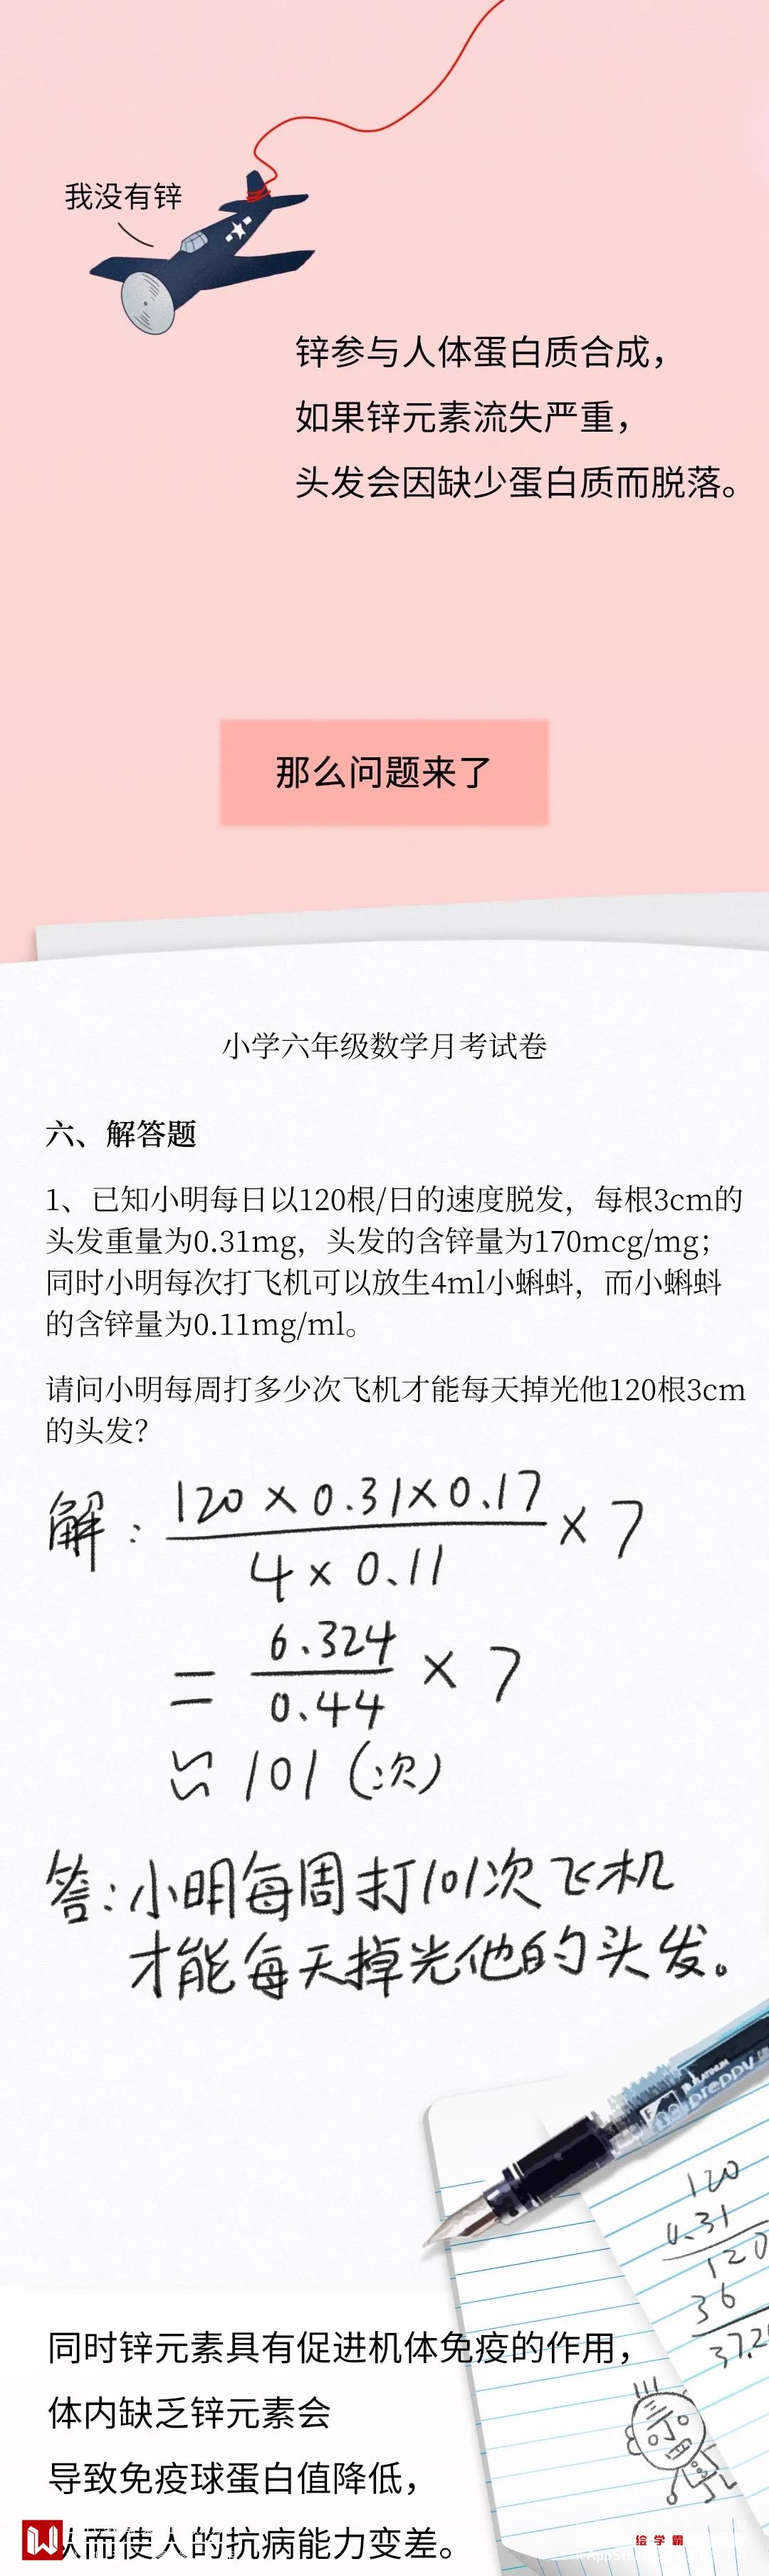 我没有锌
锌参与人体蛋白质合成，
如果锌元素流失严重，
头发会因缺少蛋白质而脱落。
那么问题来了
小学六年级数学月考试卷
六、解答题
1、已知小明每日以120根/日的速度脱发，每根3cm的
头发重量为0.31mg，头发的含锌量为170mcg/mg；
同时小明每次打飞机可以放生4ml小蝌蚪，而小蝌蚪
的含锌量为0.11mg/ml。
请问小明每周打多少次飞机才能每天掉光他120根3cm
的头发？
解：120×0.31×0.17
4×0.11
×7
= 6.324
0.44
×7
≈101（次）
答：小明每周打101次飞机
才能每天掉光他的头发。
PLATINUM
preppy
120
0.31
120
36
37.2
同时锌元素具有促进机体免疫的作用，
体内缺乏锌元素会
导致免疫球蛋白值降低，
从而使人的抗病能力变差。
绘学霸